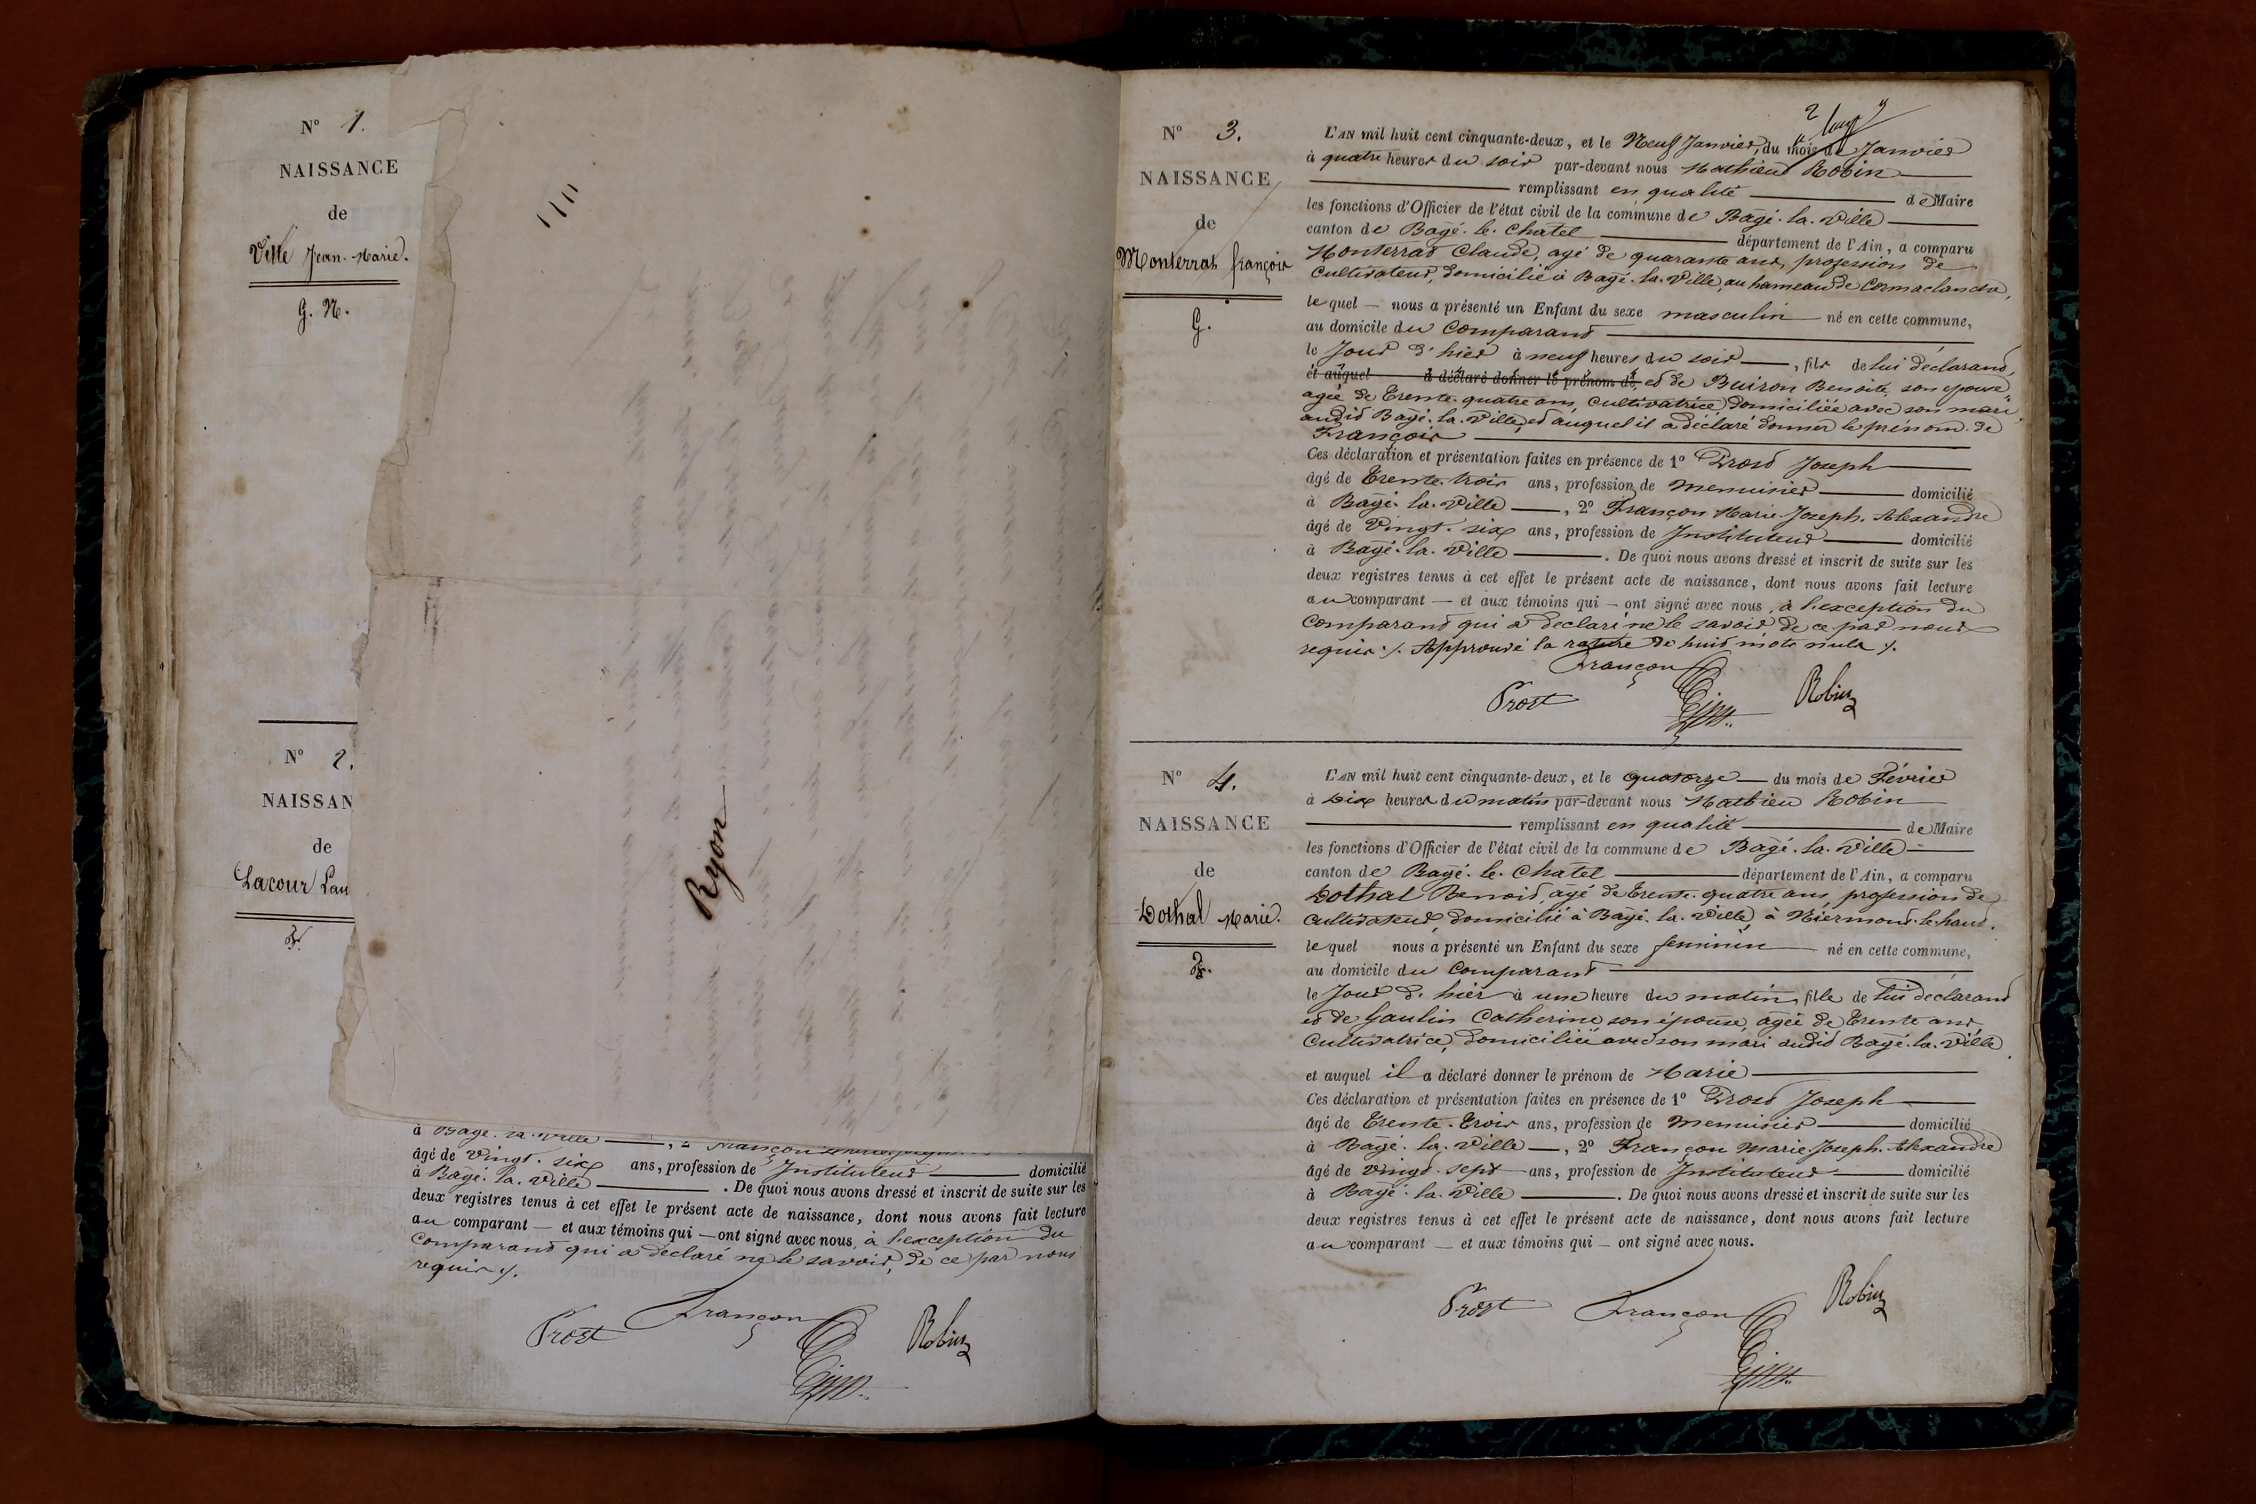 Nº 1.
NAISSANCE
de
Ville Jean-Marie.
G. N.
Nº 2.
NAISSAN
de
Lacour Lau
F.
Ryon
à Bagé-la-Ville —, 2º Françon
âgé de Vingt-six ans, profession de Instituteur — domicilié
à Bagé-la-Ville — . De quoi nous avons dressé et inscrit de suite sur les
deux registres tenus à cet effet le présent acte de naissance, dont nous avons fait lecture
au comparant — et aux témoins qui — ont signé avec nous, à l'exception du
comparant qui a déclaré ne le savoir, de ce par nous
requis ./.
Prost Françon Robin
Nº 3.
NAISSANCE
de
Monterrat françois
G.
L'AN mil huit cent cinquante-deux, et le Neuf Janvier, du mois de Janvier
à quatre heures du soir par-devant nous Mathieu Robin —
— remplissant en qualité — de Maire
les fonctions d'Officier de l'état civil de la commune de Bagé-la-Ville —
canton de Bagé-le-Chatel — département de l'Ain, a comparu
Monterrat Claude, agé de quarante ans, profession de
Cultivateur, domicilié à Bagé-la-Ville, au hameau de Cormaclanche,
lequel — nous a présenté un Enfant du sexe masculin — né en cette commune,
au domicile du Comparant —
le Jour d'hier à neuf heures du soir —, fils de lui déclarant,
et auquel a déclaré donner le prénom de, et de Buiron Benoite, son épouse
agée de Trente-quatre ans, Cultivatrice, domiciliée avec son mari
audit Bagé-la-Ville, et auquel il a déclaré donner le prénom de
François —
Ces déclaration et présentation faites en présence de 1º Prost Joseph —
âgé de Trente-trois ans, profession de Menuisier — domicilié
à Bagé-la-Ville —, 2º Françon Marie-Joseph-Alexandre
âgé de Vingt-six ans, profession de Instituteur — domicilié
à Bagé-la-Ville — . De quoi nous avons dressé et inscrit de suite sur les
deux registres tenus à cet effet le présent acte de naissance, dont nous avons fait lecture
au comparant — et aux témoins qui — ont signé avec nous, à l'exception du
Comparant qui a déclaré ne le savoir de ce par nous
requis ./. Approuvé la rature de huit mots nuls ./.
Françon
Prost Robin
Nº 4.
NAISSANCE
de
Dothal Marie.
F.
L'AN mil huit cent cinquante-deux, et le quatorze — du mois de Février
à Dix heures du matin par-devant nous Mathieu Robin —
— remplissant en qualité — de Maire
les fonctions d'Officier de l'état civil de la commune de Bagé-la-Ville —
canton de Bagé-le-Chatel — département de l'Ain, a comparu
Dothal Benoit, agé de Trente-quatre ans, profession de
Cultivateur, domicilié à Bagé-la-Ville, à
lequel nous a présenté un Enfant du sexe feminin — né en cette commune,
au domicile du Comparant —
le Jour d'hier à une heure du matin, fille de lui déclarant
et de Gaulin Catherine son épouse, agée de Trente ans,
Cultivatrice, domiciliée avec son mari audit Bagé-la-Ville
et auquel il a déclaré donner le prénom de Marie —
Ces déclaration et présentation faites en présence de 1º Prost Joseph —
âgé de Trente-trois ans, profession de Menuisier — domicilié
à Bagé-la-Ville —, 2º Françon Marie-Joseph-Alexandre
âgé de vingt-sept ans, profession de Instituteur — domicilié
à Bagé-la-Ville — . De quoi nous avons dressé et inscrit de suite sur les
deux registres tenus à cet effet le présent acte de naissance, dont nous avons fait lecture
au comparant — et aux témoins qui — ont signé avec nous.
Prost Françon Robin